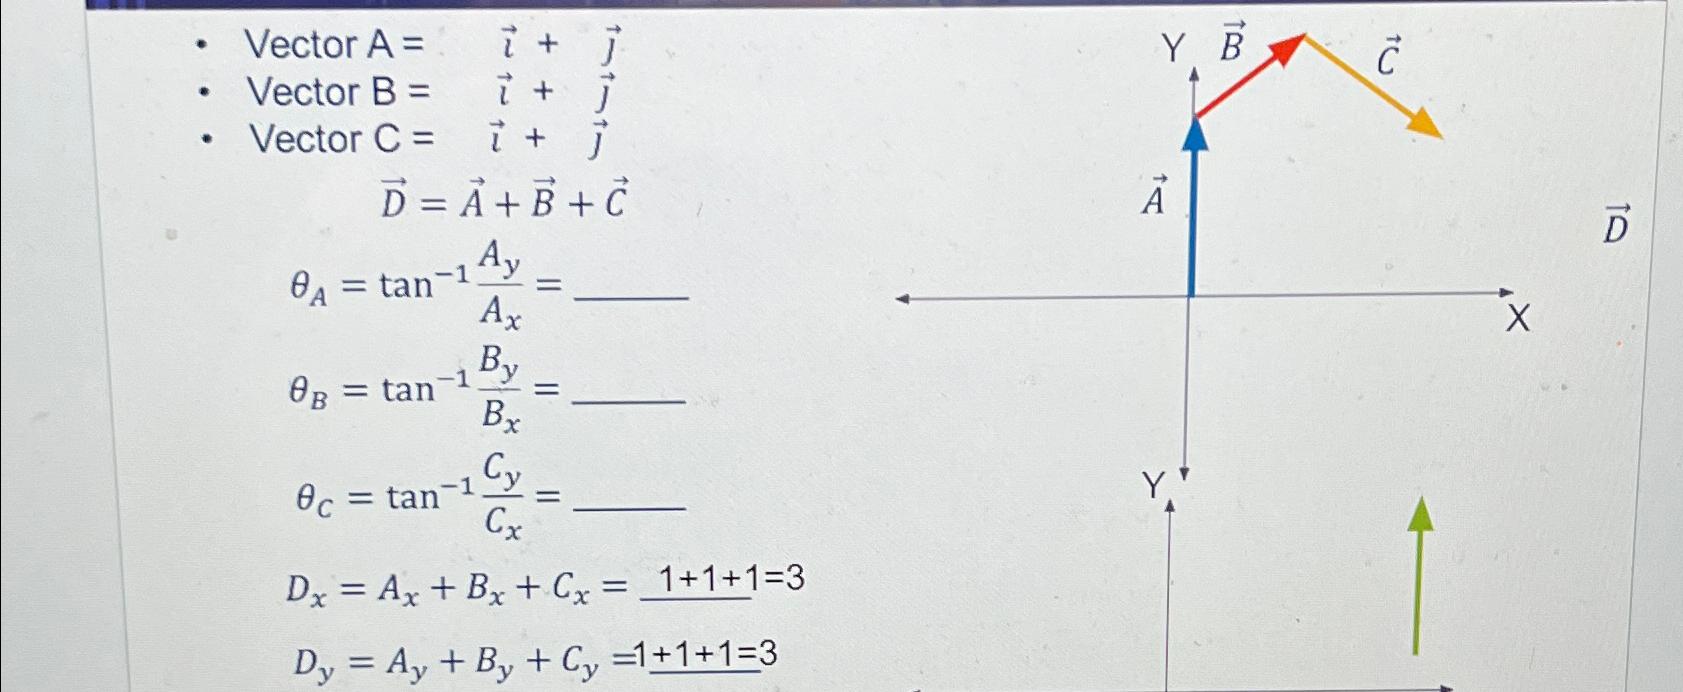 • Vector A = i⃗ + j⃗
• Vector B = i⃗ + j⃗
• Vector C = i⃗ + j⃗
D⃗ = A⃗ + B⃗ + C⃗
θ_A = tan⁻¹ A_y/A_x = ______
θ_B = tan⁻¹ B_y/B_x = ______
θ_C = tan⁻¹ C_y/C_x = ______
D_x = A_x + B_x + C_x = 1+1+1=3
D_y = A_y + B_y + C_y =1+1+1=3
Y B⃗
C⃗
A⃗
D⃗
X
Y